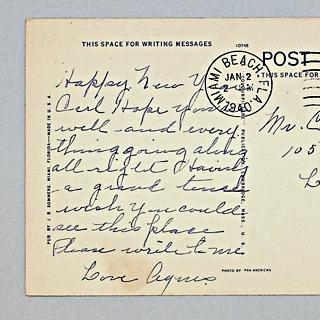 THIS SPACE FOR WRITING MESSAGES
10748
POST
THIS SPACE FOR
MIAMI BEACH, FLA.
JAN 2
2 PM
1940
Happy New Y
Carl Hope you
well and every
thing going along
all right Having
a grand time
wish you could
see this place
Please write to me
Love Agnes
Mr. C
105
L
PUB. BY J. B. SOMMERS, MIAMI, FLORIDA—MADE IN U.S.A.
CAMBRIDGE, MASS., U.S.
PHOTO BY PAN-AMERICAN